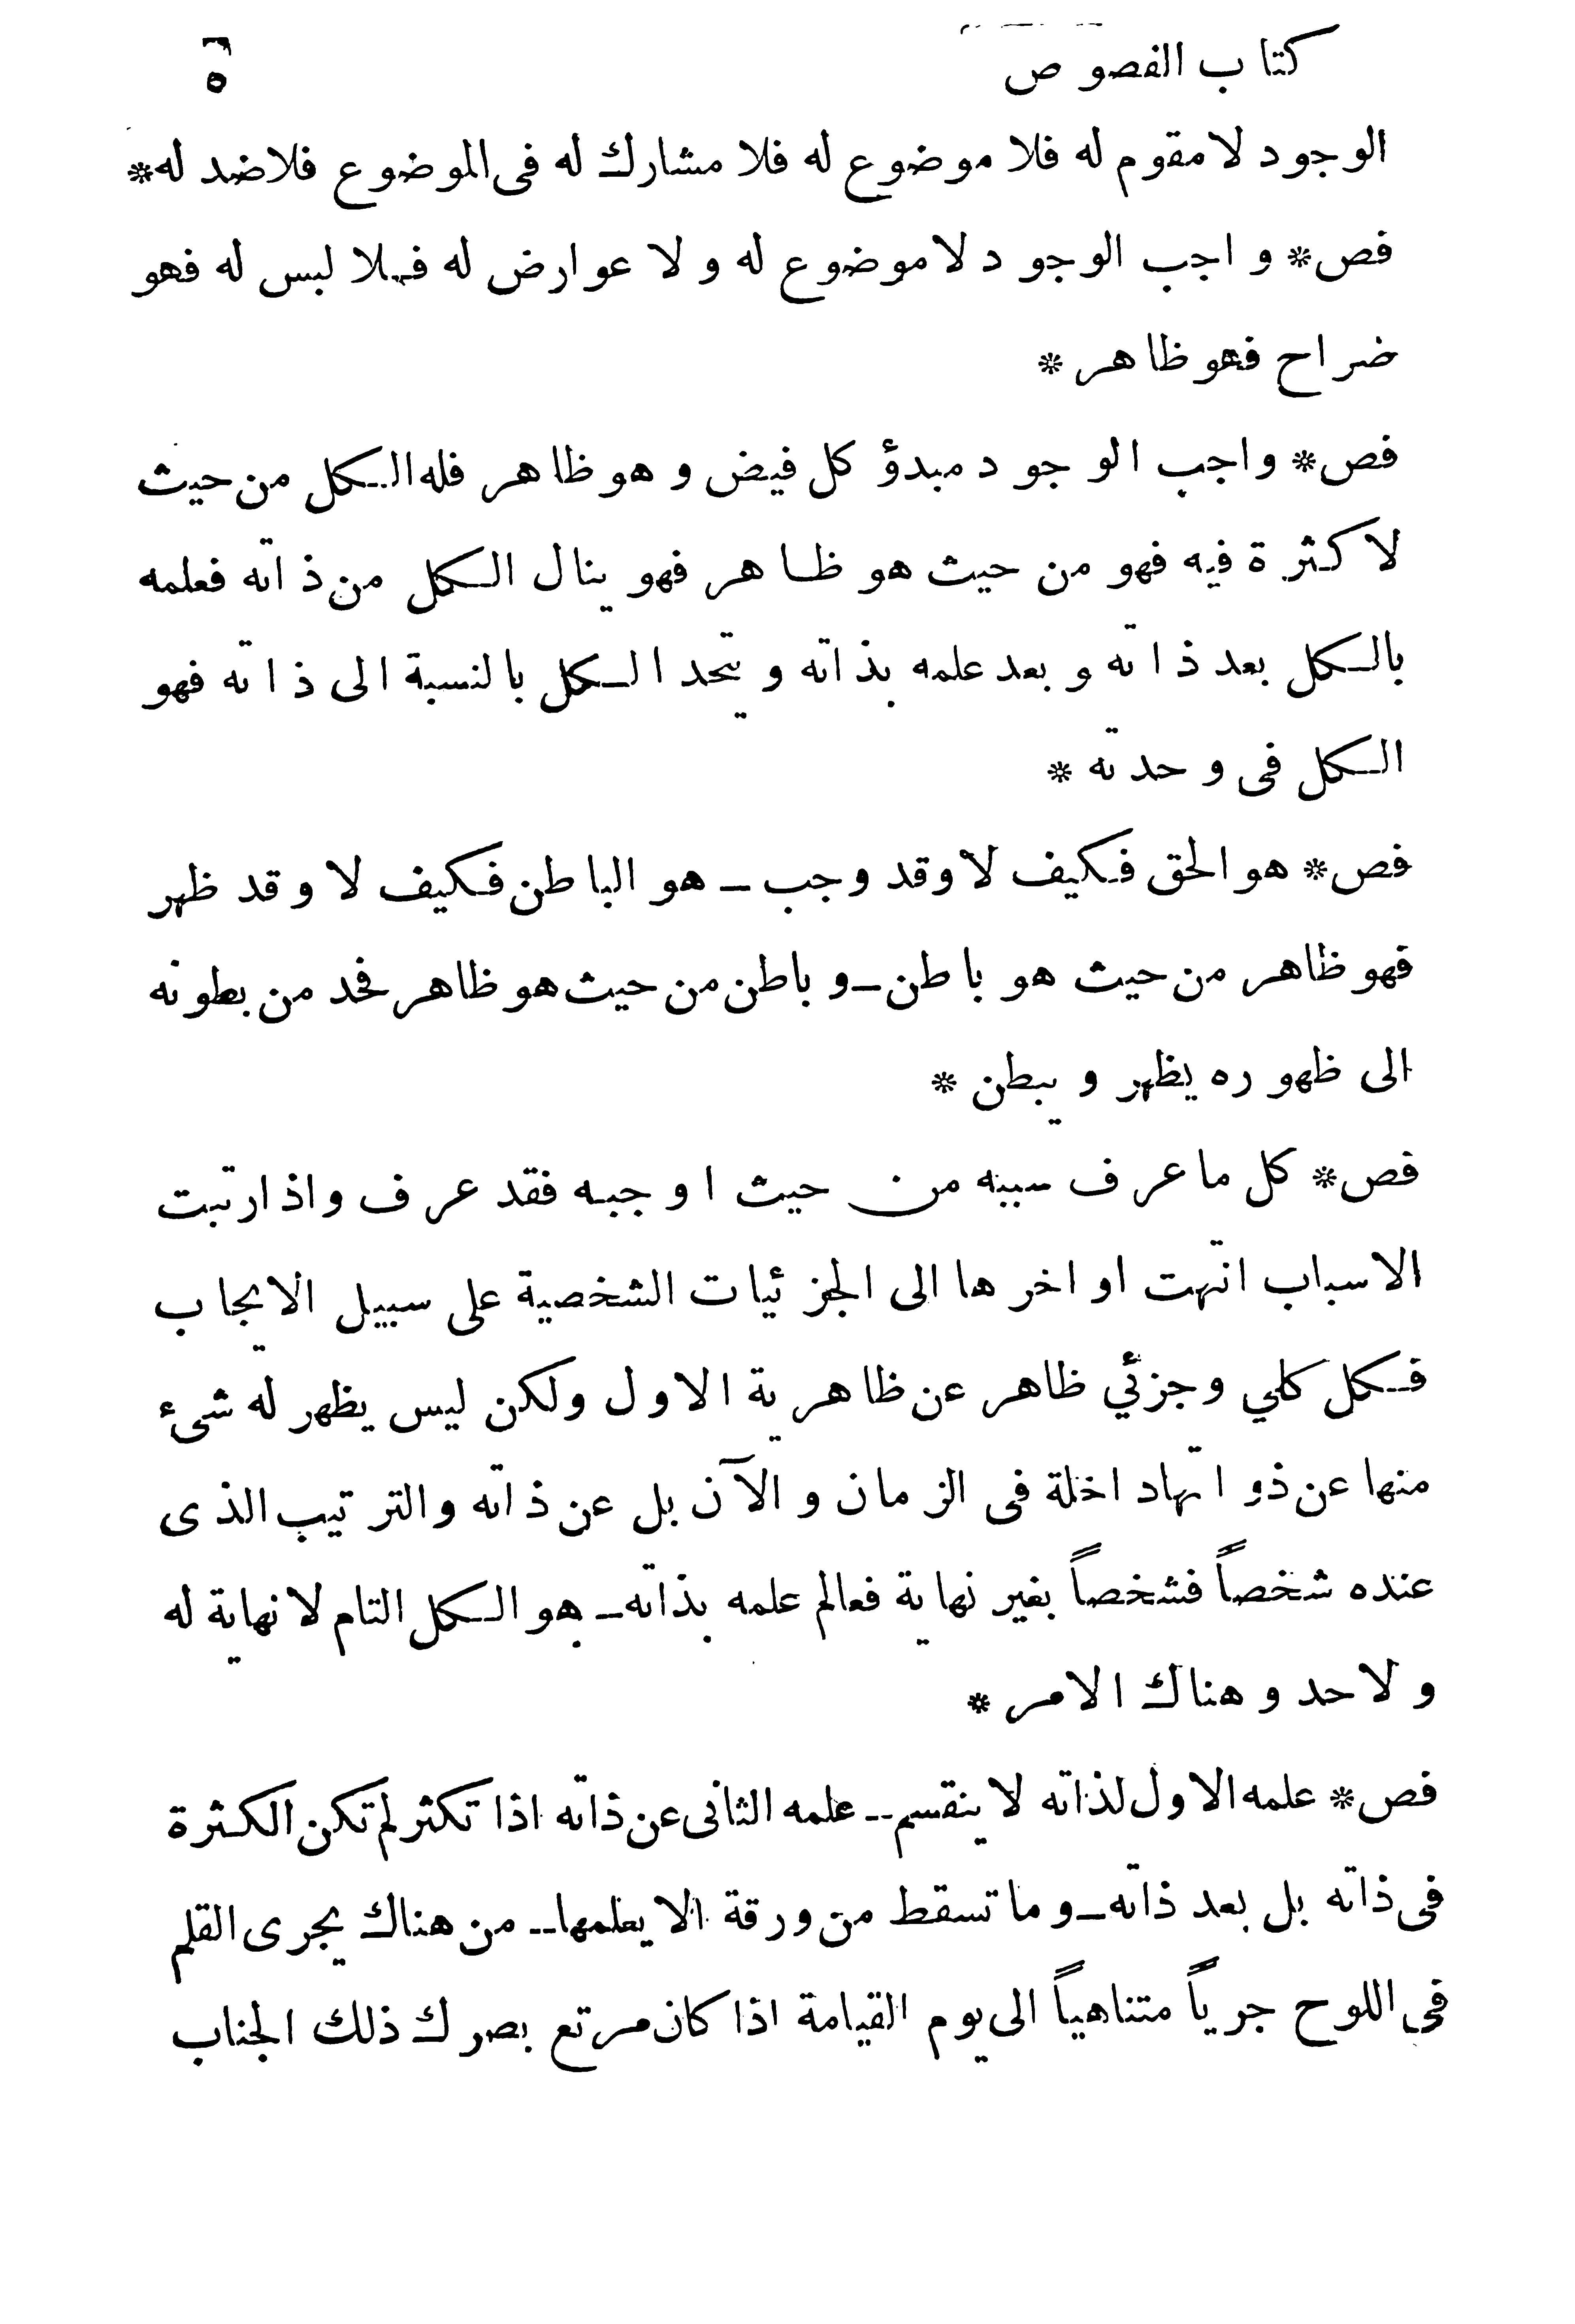 كتاب الفصوص ٥
الوجود لا مقوم له فلا موضوع له فلا مشارك له فى الموضوع فلا ضد له *
فص * واجب الوجود لا موضوع له ولا عوارض له فلا لبس له فهو
ضراح فهو ظاهر *
فص * واجب الوجود مبدؤ كل فيض وهو ظاهر فله الكل من حيث
لا كثرة فيه فهو من حيث هو ظاهر فهو ينال الكل من ذاته فعلمه
بالكل بعد ذاته وبعد علمه بذاته ويتحد الكل بالنسبة الى ذاته فهو
الكل فى وحدته *
فص * هو الحق فكيف لا وقد وجب – هو الباطن فكيف لا وقد ظهر
فهو ظاهر من حيث هو باطن – وباطن من حيث هو ظاهر فخد من بطونه
الى ظهوره يظهر ويبطن *
فص * كل ما عرف سببه من حيث اوجبه فقد عرف واذا رتبت
الاسباب انتهت اواخرها الى الجزئيات الشخصية على سبيل الايجاب
فكل كلي وجزئي ظاهر عن ظاهرية الاول ولكن ليس يظهر له شىء
منها عن ذواتها داخلة فى الزمان والآن بل عن ذاته والترتيب الذى
عنده شخصاً فشخصاً بغير نهاية فعالم علمه بذاته – هو الكل التام لا نهاية له
ولا حد وهناك الامر *
فص * علمه الاول لذاته لا ينقسم – علمه الثانى عن ذاته اذا تكثر لم تكن الكثرة
فى ذاته بل بعد ذاته – وما تسقط من ورقة الا يعلمها – من هناك يجرى القلم
فى اللوح جرياً متناهياً الى يوم القيامة اذا كان مرتع بصرك ذلك الجناب